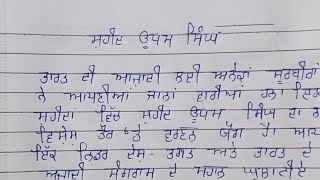 ਸ਼ਹੀਦ ਊਧਮ ਸਿੰਘ
ਭਾਰਤ ਦੀ ਆਜ਼ਾਦੀ ਲਈ ਅਨੇਕਾਂ ਸੂਰਬੀਰਾਂ
ਨੇ ਆਪਣੀਆਂ ਜਾਨਾਂ ਵਾਰੀਆਂ ਹਨ। ਇਹਨਾਂ
ਸ਼ਹੀਦਾਂ ਵਿੱਚ ਸ਼ਹੀਦ ਊਧਮ ਸਿੰਘ ਦਾ
ਵਿਸ਼ੇਸ਼ ਤੌਰ 'ਤੇ ਵਰਣਨ ਯੋਗ ਹੈ। ਆਪ
ਇੱਕ ਨਿਡਰ ਦੇਸ਼-ਭਗਤ ਅਤੇ ਭਾਰਤ ਦੇ
ਅਜ਼ਾਦੀ ਸੰਗਰਾਮ ਦੇ ਮਹਾਨ ਘੁਲਾਟੀਏ